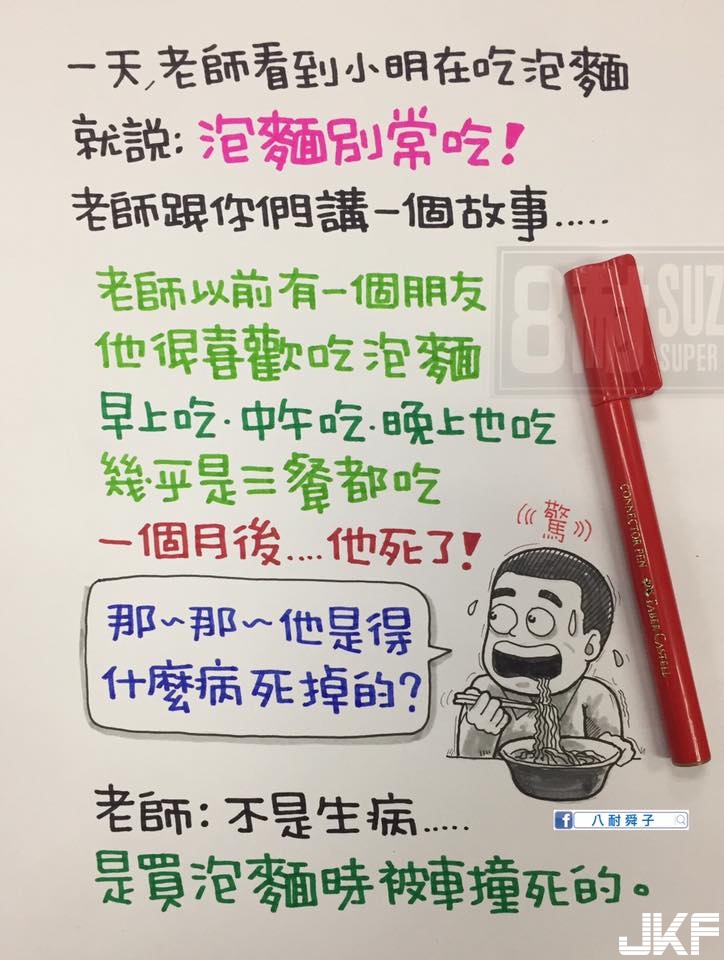 一天,老師看到小明在吃泡麵
就說:泡麵別常吃!
老師跟你們講一個故事.....
8耐 SUZ
SUPER
老師以前有一個朋友
他很喜歡吃泡麵
早上吃.中午吃.晚上也吃
幾乎是三餐都吃
一個月後....他死了!
驚
CONNECTOR PEN FABER CASTELL
那~那~他是得
什麼病死掉的?
老師:不是生病.....
f 八耐舜子
是買泡麵時被車撞死的。
JKF